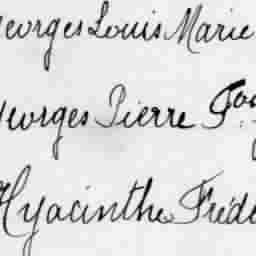 Georges Louis Marie
Georges Pierre
Hyacinthe Fréde